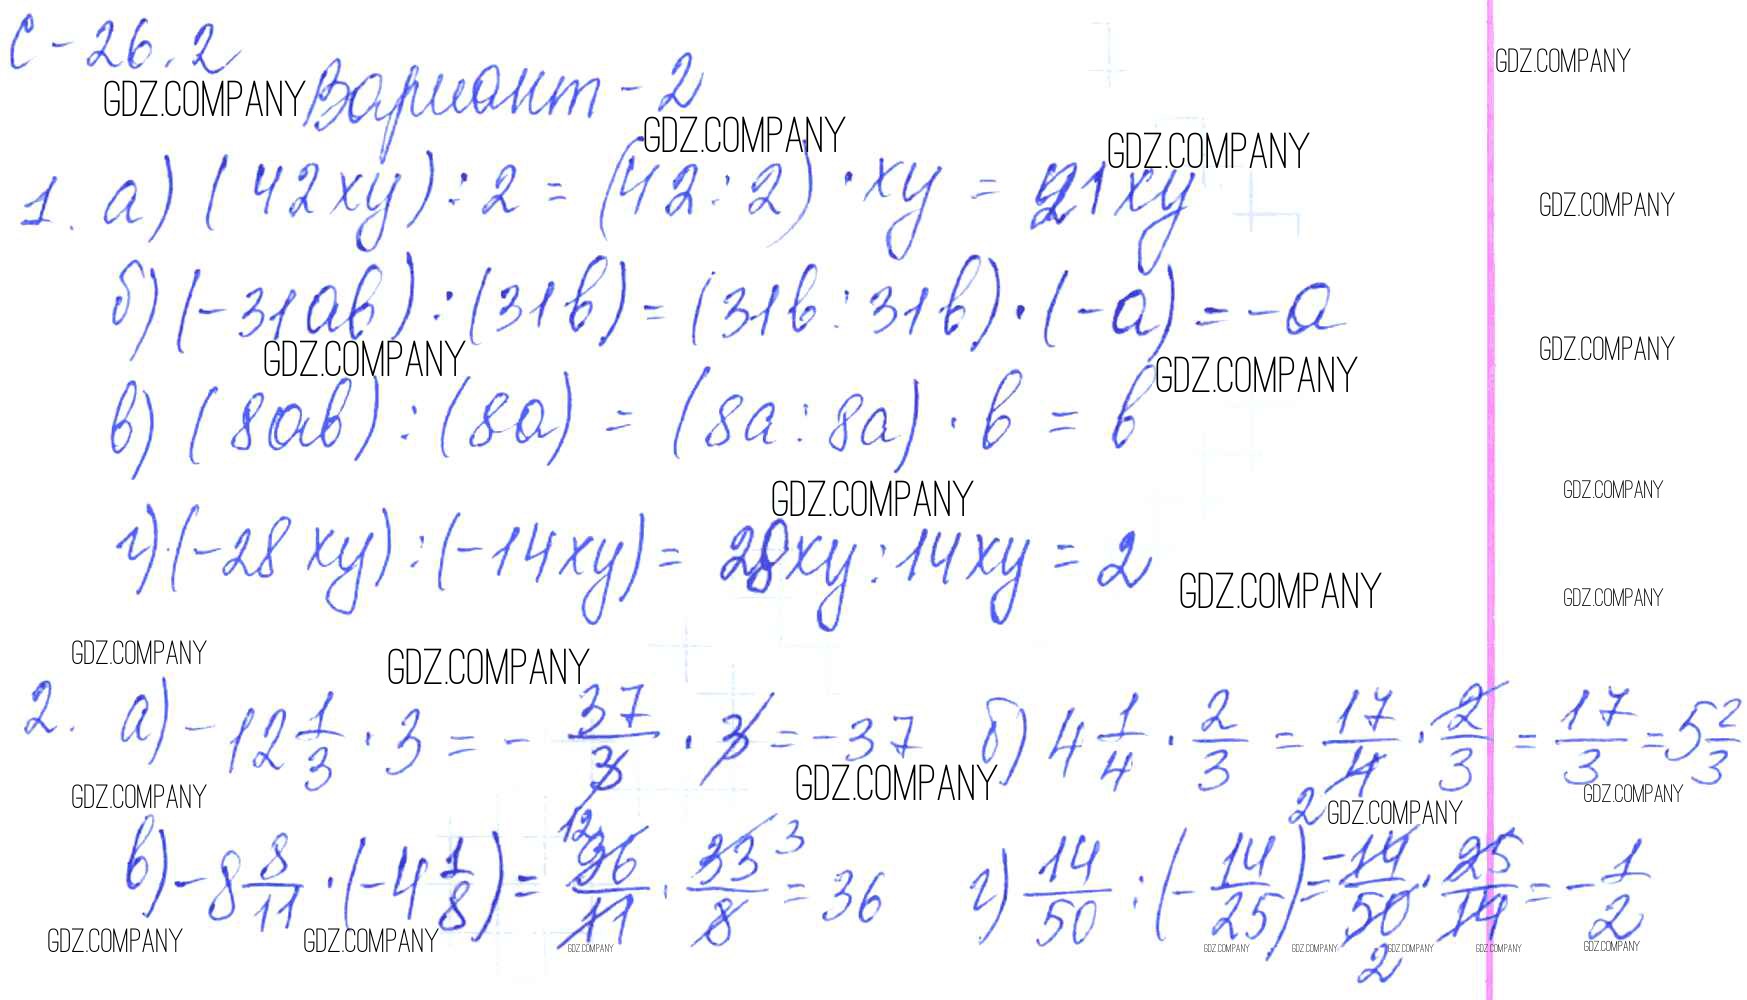 С-26.2
GDZ.COMPANY Вариант-2 GDZ.COMPANY
GDZ.COMPANY GDZ.COMPANY
1. а) (42xy) : 2 = (42 : 2) · xy = 21xy GDZ.COMPANY
б) (-31ab) : (31b) = (31b : 31b) · (-a) = -a
GDZ.COMPANY GDZ.COMPANY GDZ.COMPANY
в) (8ab) : (8a) = (8a : 8a) · b = b
GDZ.COMPANY GDZ.COMPANY
г) (-28xy) : (-14xy) = 28xy : 14xy = 2
GDZ.COMPANY GDZ.COMPANY
GDZ.COMPANY GDZ.COMPANY
2. а) -12 1/3 · 3 = - 37/3 · 3 = -37 б) 4 1/4 · 2/3 = 17/4 · 2/3 = 17/3 = 5 2/3
GDZ.COMPANY GDZ.COMPANY 2 GDZ.COMPANY GDZ.COMPANY
в) -8 8/11 · (-4 1/8) = 12 36/11 · 33/8 3 = 36 г) 14/50 : (- 14/25) = -14/50 · 25/14 = - 1/2
GDZ.COMPANY GDZ.COMPANY GDZ.COMPANY GDZ.COMPANY GDZ.COMPANY GDZ.COMPANY GDZ.COMPANY GDZ.COMPANY
2